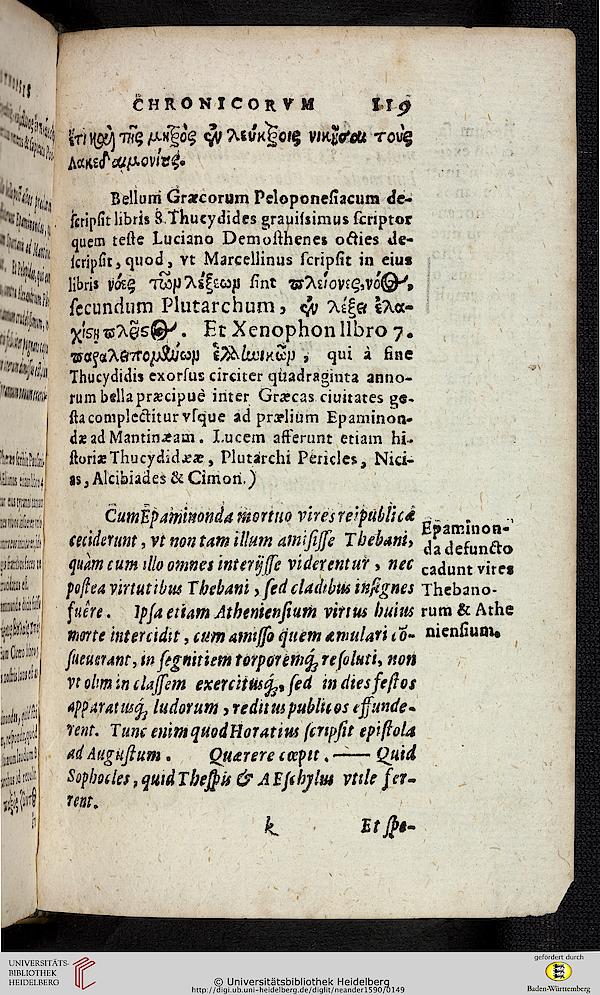 CHRONICORVM 119
ἔτι καὶ τῆς μικρὸς ἐν λεύκτροις νικῆσαι τοὺς
Λακεδαιμονίους.
Bellum Græcorum Peloponesiacum de-
scripsit libris 8. Thucydides grauissimus scriptor
quem teste Luciano Demosthenes octies de-
scripsit, quod, vt Marcellinus scripsit in eius
libris νόες τῶν λέξεων sint πλείονες, νόος,
secundum Plutarchum, ἐν λέξει ἐλα-
χίστη πλεῖστος. Et Xenophon libro 7.
παραλειπομένων ἑλληνικῶν, qui à fine
Thucydidis exorsus circiter quadraginta anno-
rum bella præcipuè inter Græcas ciuitates ge-
sta complectitur vsque ad prælium Epaminon-
dæ ad Mantinæam. Lucem afferunt etiam hi-
storiæ Thucydidææ, Plutarchi Pericles, Nici-
as, Alcibiades & Cimon.)
Cum Epaminonda mortuo vires reipublicæ
ceciderunt, vt non tam illum amisisse Thebani,
quàm cum illo omnes interijsse viderentur, nec
postea virtutibus Thebani, sed cladibus insignes
fuêre. Ipsa etiam Atheniensium virtus huius
morte intercidit, cum amisso quem æmulari cō-
sueuerant, in segnitiem torporemq́; resoluti, non
vt olim in classem exercitusq́;, sed in dies festos
apparatusq́; ludorum, reditus publicos effunde-
rent. Tunc enim quod Horatius scripsit epistola
ad Augustum. Quærere cœpit. — Quid
Sophocles, quid Thespis & AEschylus vtile fer-
rent.
k Et spe-
Epaminon-
da defuncto
cadunt vires
Thebano-
rum & Athe
niensium.
UNIVERSITÄTS-
BIBLIOTHEK
HEIDELBERG
© Universitätsbibliothek Heidelberg
http://digi.ub.uni-heidelberg.de/diglit/neander1590/0149
gefördert durch
Baden-Württemberg